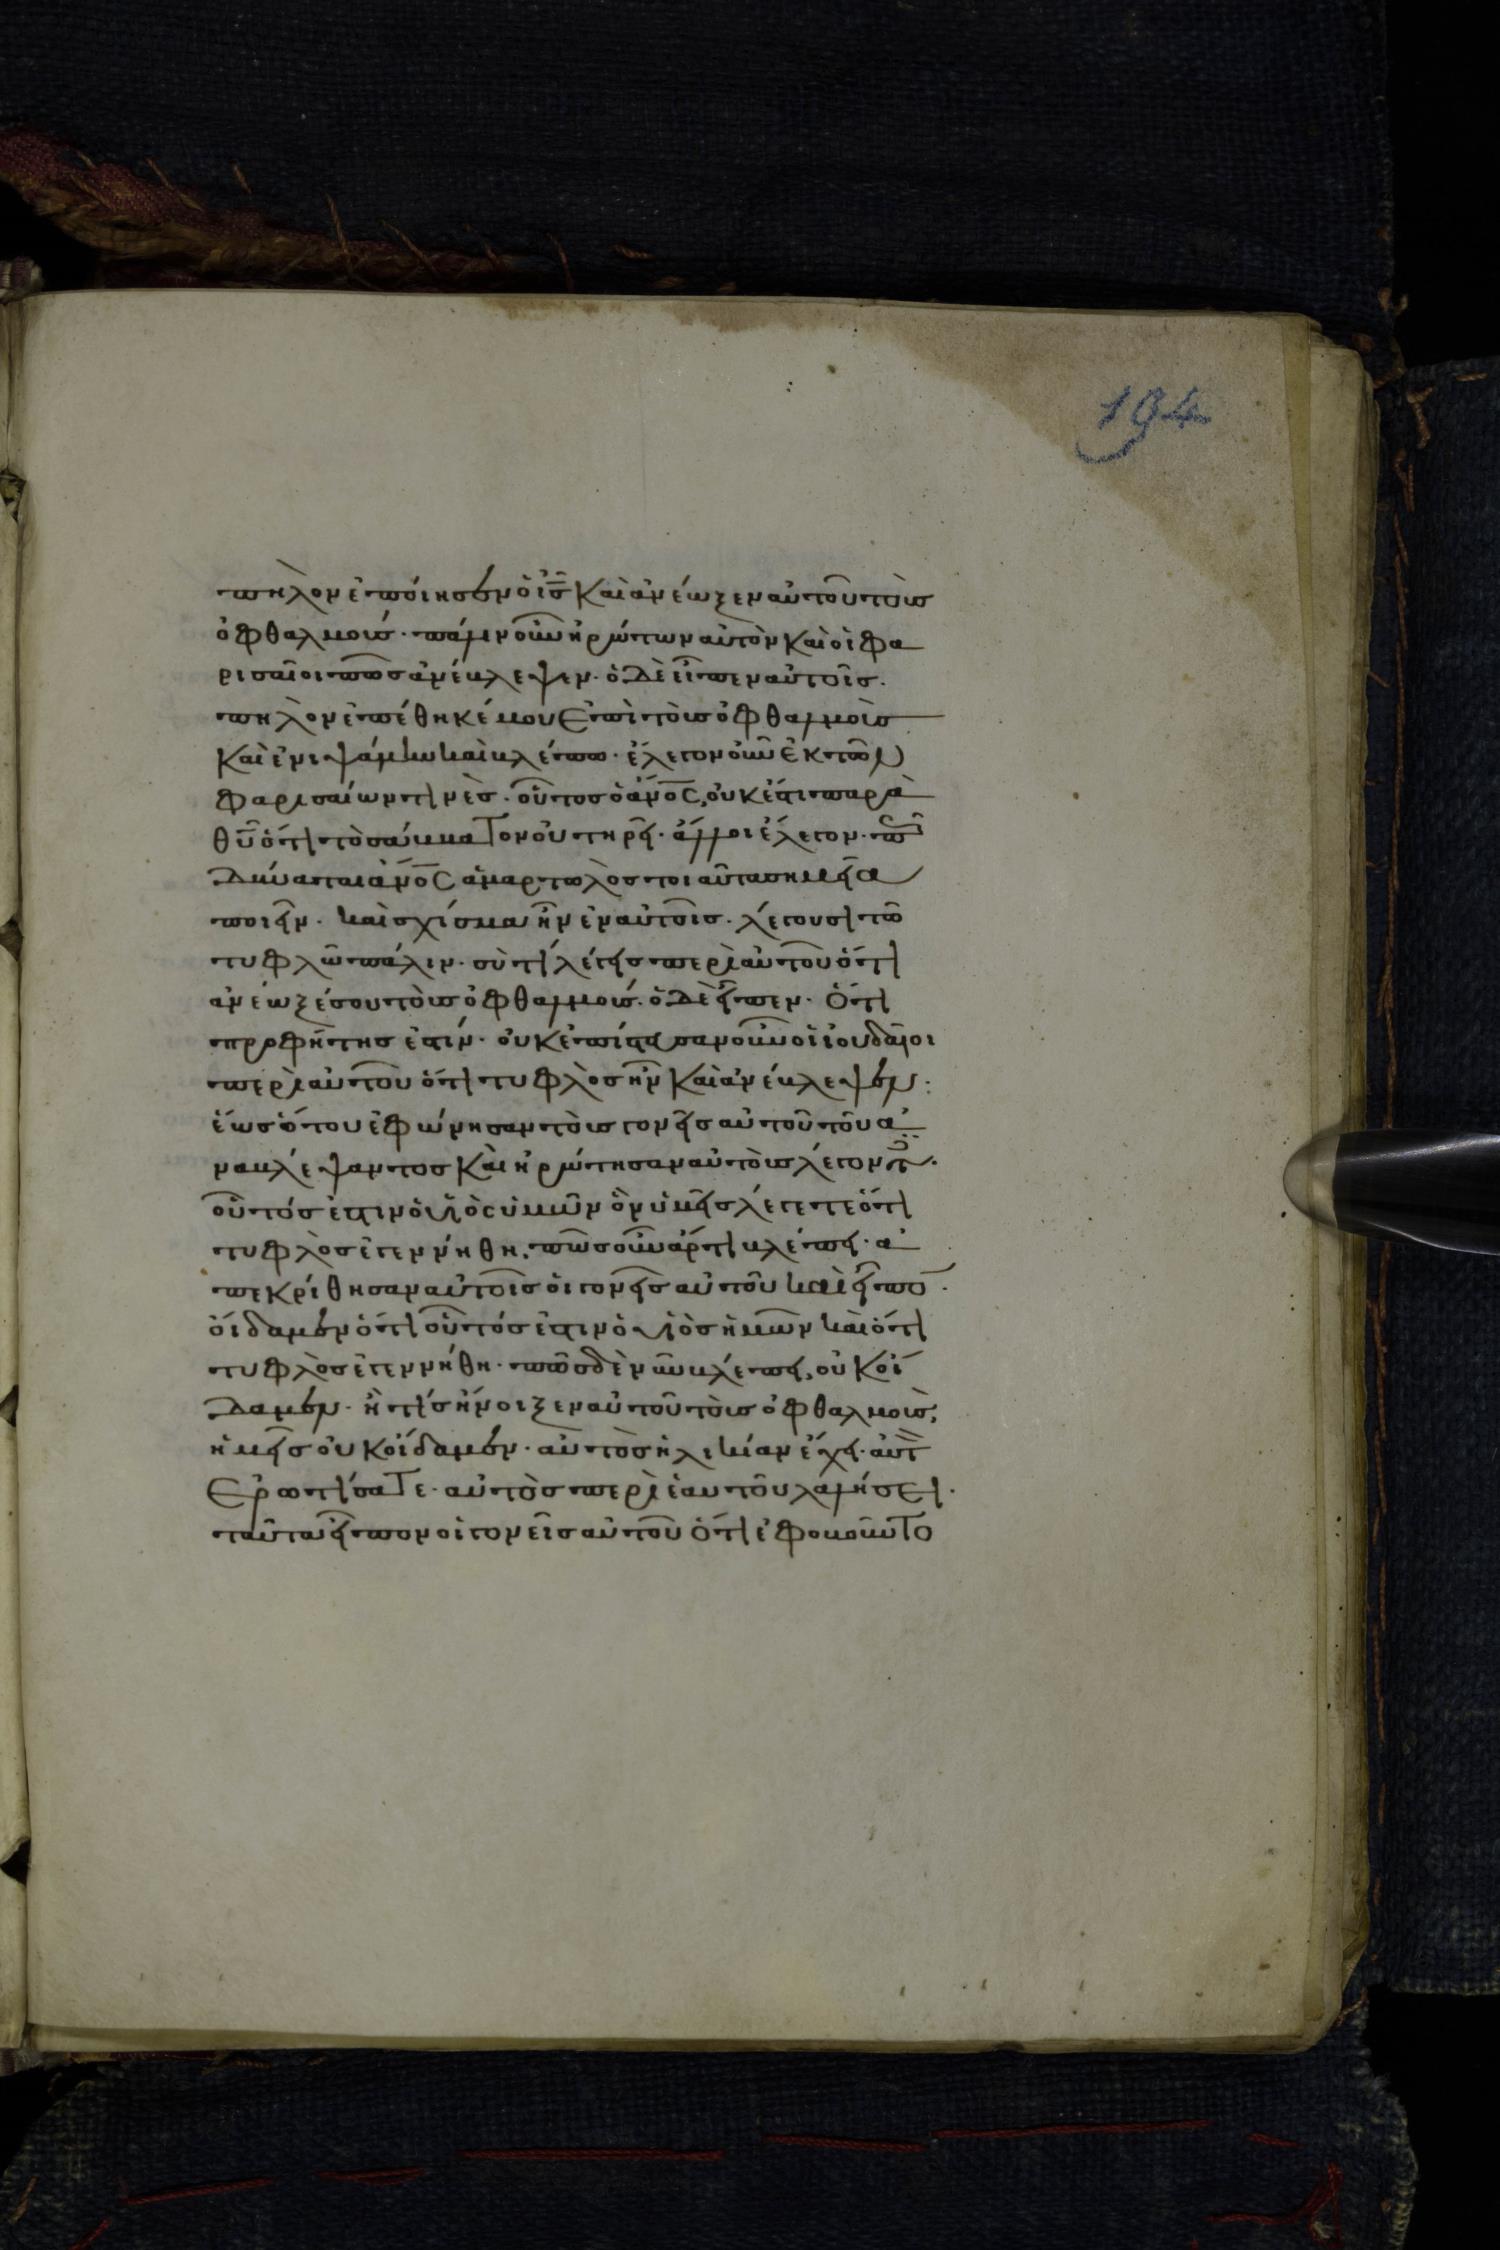 194
πηλὸν ἐποίησεν ὁ ἰ̅ς̅ καὶ ἀνέωξεν αὐτοῦ τοὺς
ὀφθαλμούς· πάλιν οὖν ἠρώτων αὐτὸν καὶ οἱ φα
ρισαῖοι πῶς ἀνέβλεψεν· ὁ δὲ εἶπεν αὐτοῖς·
πηλὸν ἐπέθηκέ μου ἐπὶ τοὺς ὀφθαλμοὺς
καὶ ἐνιψάμην καὶ βλέπω· ἔλεγον οὖν ἐκ τῶν
φαρισαίων τινὲς· οὗτος ὁ ἄν̅ο̅ς̅, οὐκ ἔστι παρὰ
θ̅υ̅ ὅτι τὸ σάββατον οὐ τηρεῖ· ἄλλοι ἔλεγον· πῶς
δύναται ἄν̅ο̅ς̅ ἁμαρτωλὸς τοιαῦτα σημεῖα
ποιεῖν· καὶ σχίσμα ἦν ἐν αὐτοῖς· λέγουσι τῶ
τυφλῶ πάλιν· σὺ τί λέγεις περὶ αὐτοῦ ὅτι
ἀνέωξέ σου τοὺς ὀφθαλμούς· ὁ δὲ εἶπεν· ὅτι
προφήτης ἐστίν· οὐκ ἐπίστευσαν οὖν οἱ ἰουδαῖοι
περὶ αὐτοῦ ὅτι τυφλὸς ἦν καὶ ἀνέβλεψεν:
ἕως ὅτου ἐφώνησαν τοὺς γονεῖς αὐτοῦ τοῦ ἀ
ναβλέψαντος καὶ ἠρώτησαν αὐτοὺς λέγοντες·
οὗτός ἐστιν ὁ υἱὸς ὑμῶν ὃν ὑμεῖς λέγετε ὅτι
τυφλὸς ἐγεννήθη, πῶς οὖν ἄρτι βλέπει· ἀ
πεκρίθησαν αὐτοῖς οἱ γονεῖς αὐτοῦ καὶ εἶπον·
οἴδαμεν ὅτι οὗτός ἐστιν ὁ υἱὸς ἡμῶν καὶ ὅτι
τυφλὸς ἐγεννήθη· πῶς δὲ νῦν βλέπει, οὐκ οἴ
δαμεν· ἢ τίς ἤνοιξεν αὐτοῦ τοὺς ὀφθαλμοὺς,
ἡμεῖς οὐκ οἴδαμεν· αὐτὸς ἡλικίαν ἔχει· αὐτὸν
ἐρωτήσατε· αὐτὸς περὶ ἑαυτοῦ λαλήσει·
ταῦτα εἶπον οἱ γονεῖς αὐτοῦ ὅτι ἐφοβοῦντο